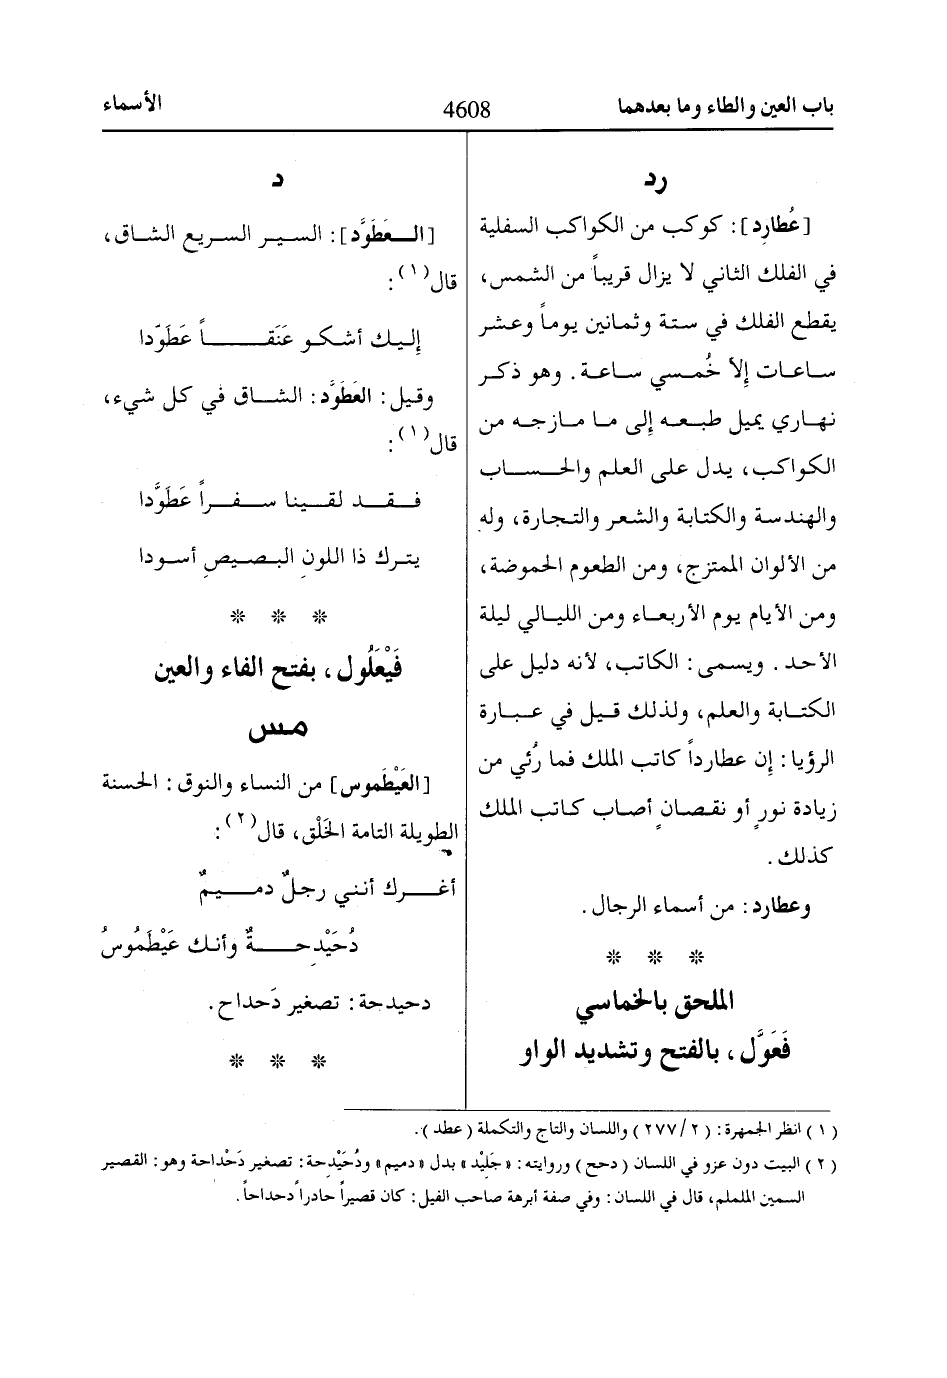 باب العين والطاء وما بعدهما
4608
الأسماء
رد
[عُطارِد]: كوكب من الكواكب السفلية
في الفلك الثاني لا يزال قريباً من الشمس،
يقطع الفلك في ستة وثمانين يوماً وعشر
ساعات إلا خُمسي ساعة. وهو ذكر
نهاري يميل طبعه إلى ما مازجه من
الكواكب، يدل على العلم والحساب
والهندسة والكتابة والشعر والتجارة، وله
من الألوان الممتزج، ومن الطعوم الحموضة،
ومن الأيام يوم الأربعاء ومن الليالي ليلة
الأحد. ويسمى: الكاتب، لأنه دليل على
الكتابة والعلم، ولذلك قيل في عبارة
الرؤيا: إن عطارداً كاتب الملك فما رُئي من
زيادة نورٍ أو نقصانٍ أصاب كاتب الملك
كذلك.
وعطارد: من أسماء الرجال.
* * *
الملحق بالخماسي
فَعَوَّل، بالفتح وتشديد الواو
د
[العَطَوَّد]: السير السريع الشاق،
قال(١):
إليك أشكو عَنَقاً عَطَوّدا
وقيل: العَطَوَّد: الشاق في كل شيء،
قال(١):
فقد لقينا سفراً عَطَوَّدا
يترك ذا اللونِ البصيصِ أسودا
* * *
فَيْعَلُول، بفتح الفاء والعين
مس
[العَيْطَموس] من النساء والنوق: الحسنة
الطويلة التامة الخَلْق، قال(٢):
أغرك أنني رجلٌ دميمٌ
دُحَيْدِحةٌ وأنك عَيْطَمُوسُ
دحيدحة: تصغير دَحداح.
* * *
(١) انظر الجمهرة: (٢/ ٢٧٧) واللسان والتاج والتكملة (عطد).
(٢) البيت دون عزو في اللسان (دحح) وروايته: «جَلِيْد» بدل «دميم» ودُحَيْدحة: تصغير دَحْداحة وهو: القصير
السمين الململم، قال في اللسان: وفي صفة أبرهة صاحب الفيل: كان قصيراً حادراً دحداحاً.